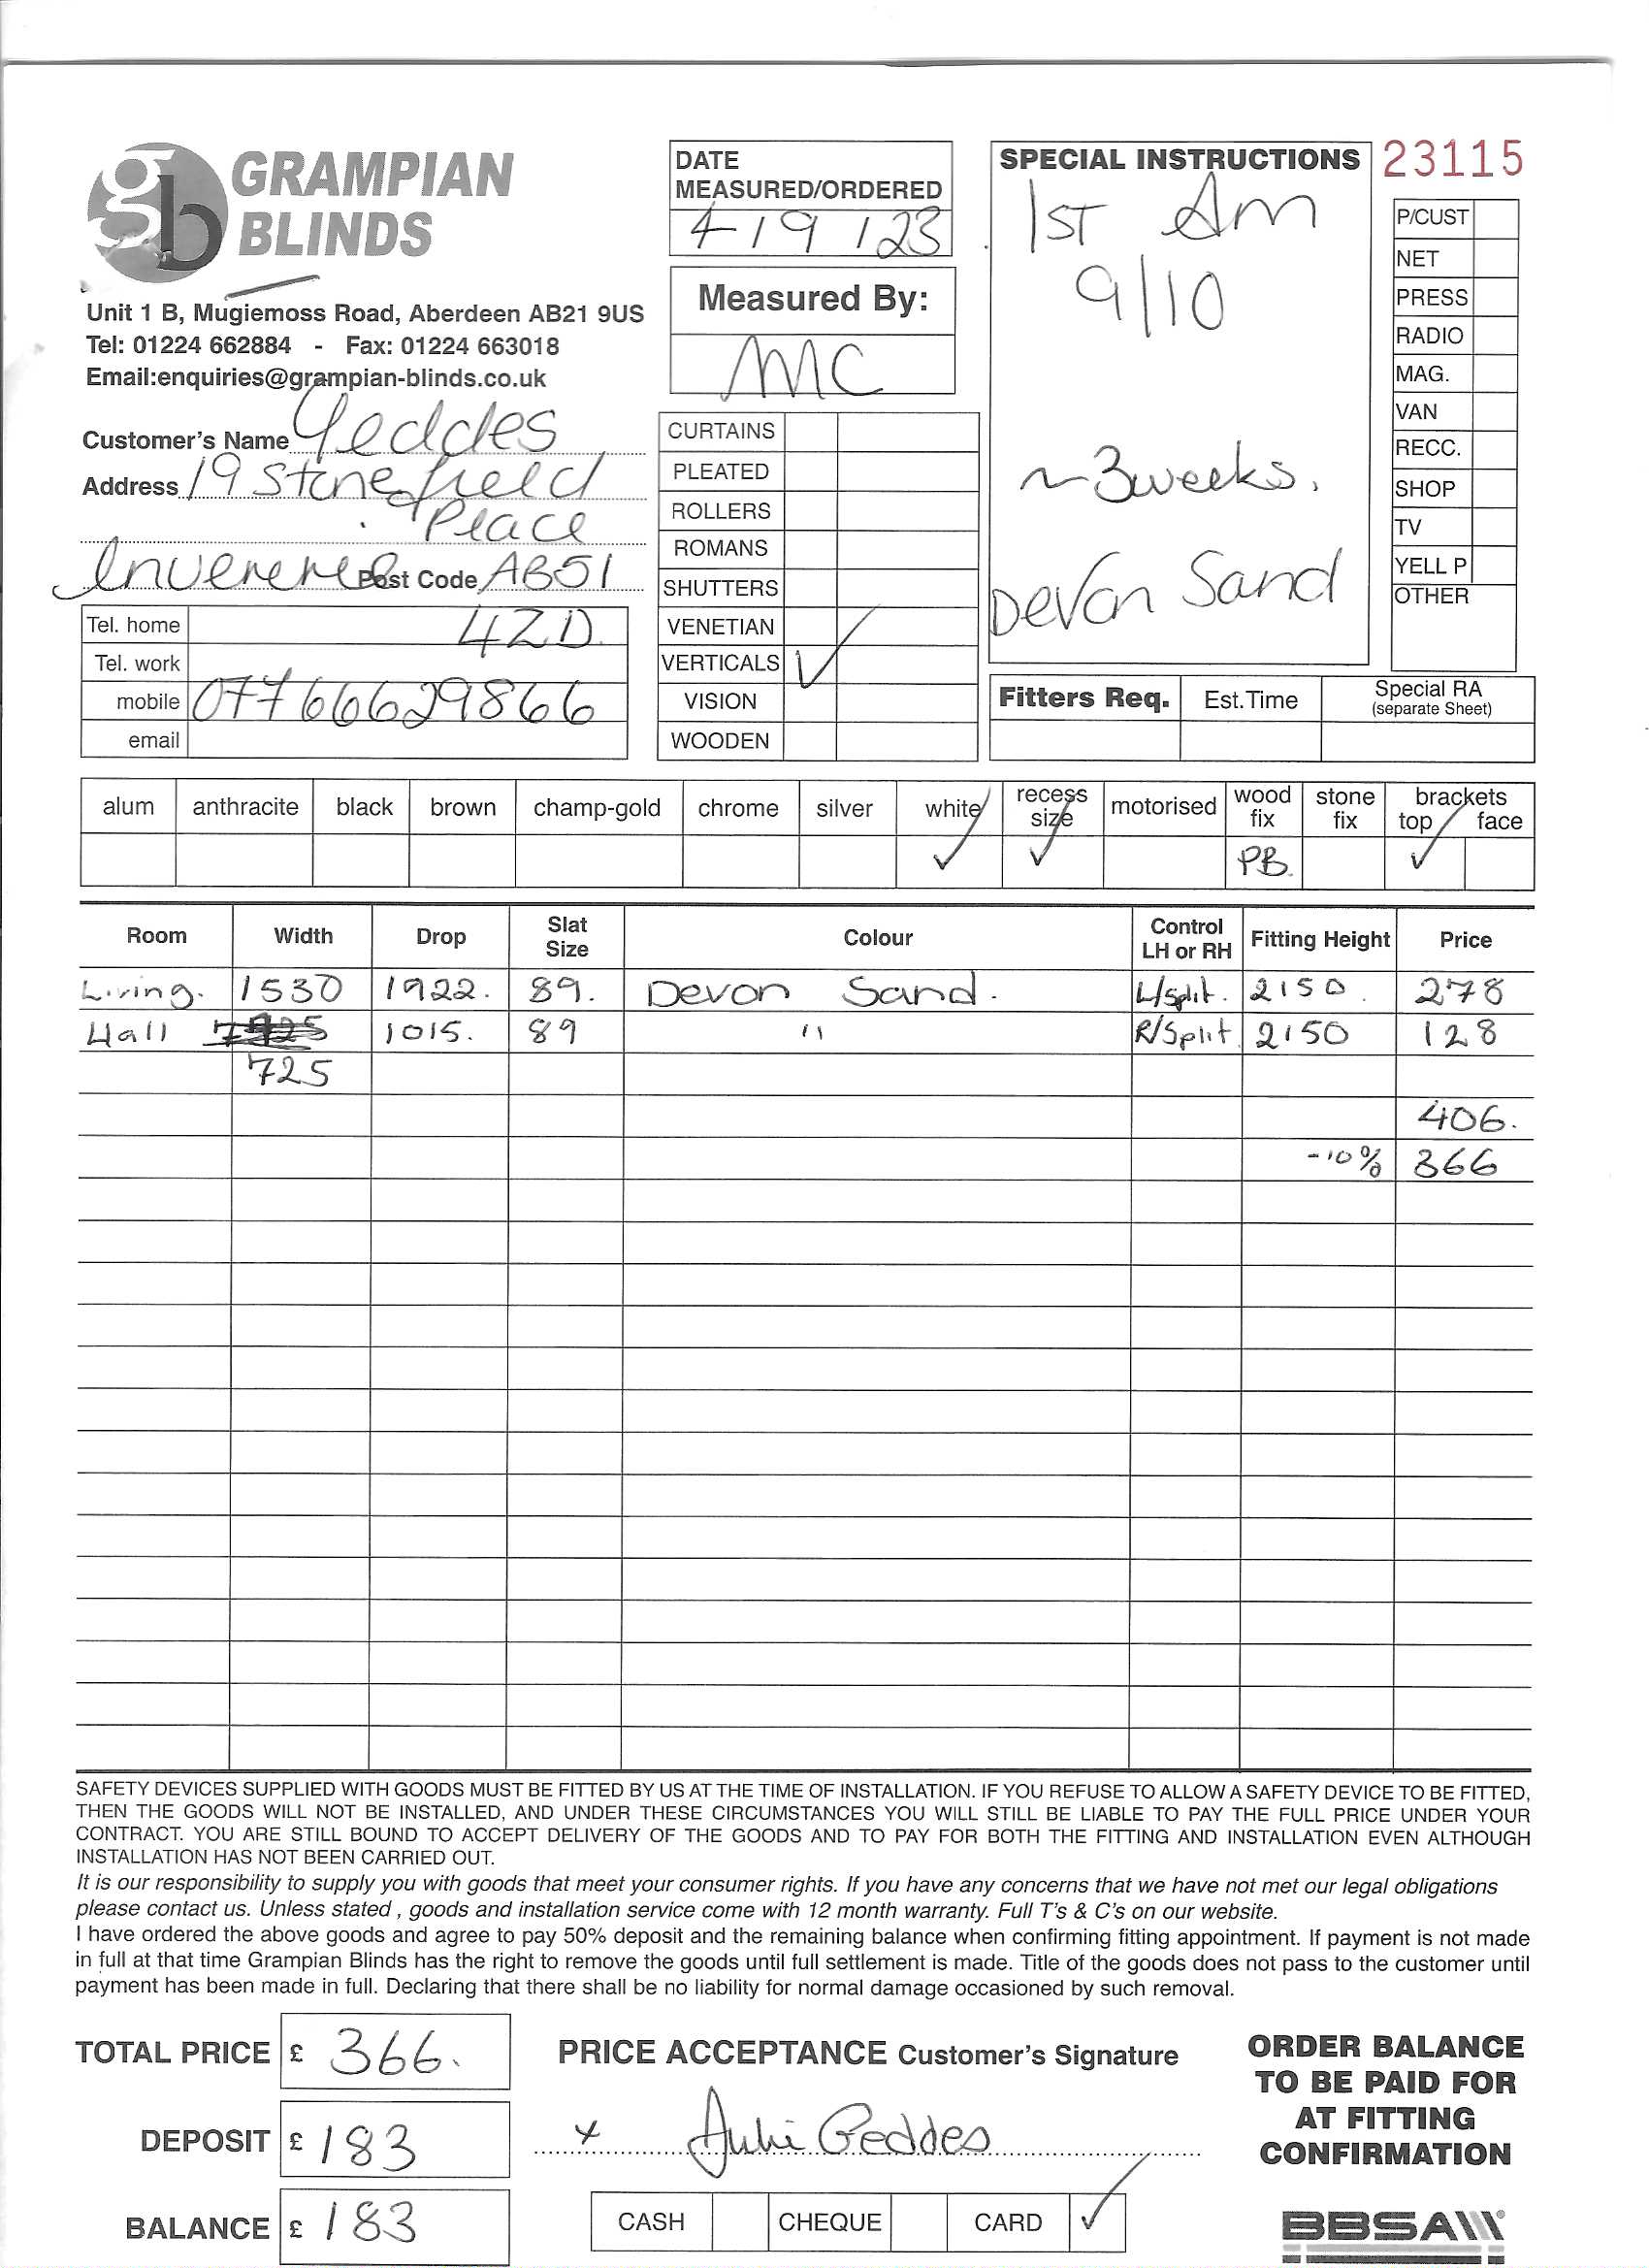 gb GRAMPIAN
BLINDS
Unit 1 B, Mugiemoss Road, Aberdeen AB21 9US
Tel: 01224 662884 - Fax: 01224 663018
Email:enquiries@grampian-blinds.co.uk
Customer's Name Geddes
Address 19 Stonefield
Place
Inverurie Post Code AB51
Tel. home 4ZD.
Tel. work
mobile 07766629866
email
DATE
MEASURED/ORDERED
4/9/23
Measured By:
MC
CURTAINS
PLEATED
ROLLERS
ROMANS
SHUTTERS
VENETIAN
VERTICALS ✓
VISION
WOODEN
SPECIAL INSTRUCTIONS
1st Am
9/10
~3weeks.
Devon Sand
23115
P/CUST
NET
PRESS
RADIO
MAG.
VAN
RECC.
SHOP
TV
YELL P
OTHER
Fitters Req. Est.Time Special RA
(separate Sheet)
alum anthracite black brown champ-gold chrome silver white recess size motorised wood fix stone fix brackets top face
✓ ✓ PB. ✓
Room Width Drop Slat Size Colour Control LH or RH Fitting Height Price
Living. 1530 1922. 89. Devon Sand. L/Split. 2150. 278
Hall 1015. 89 " R/Split. 2150 128
725
406.
-10% 366
SAFETY DEVICES SUPPLIED WITH GOODS MUST BE FITTED BY US AT THE TIME OF INSTALLATION. IF YOU REFUSE TO ALLOW A SAFETY DEVICE TO BE FITTED,
THEN THE GOODS WILL NOT BE INSTALLED, AND UNDER THESE CIRCUMSTANCES YOU WILL STILL BE LIABLE TO PAY THE FULL PRICE UNDER YOUR
CONTRACT. YOU ARE STILL BOUND TO ACCEPT DELIVERY OF THE GOODS AND TO PAY FOR BOTH THE FITTING AND INSTALLATION EVEN ALTHOUGH
INSTALLATION HAS NOT BEEN CARRIED OUT.
It is our responsibility to supply you with goods that meet your consumer rights. If you have any concerns that we have not met our legal obligations
please contact us. Unless stated , goods and installation service come with 12 month warranty. Full T's & C's on our website.
I have ordered the above goods and agree to pay 50% deposit and the remaining balance when confirming fitting appointment. If payment is not made
in full at that time Grampian Blinds has the right to remove the goods until full settlement is made. Title of the goods does not pass to the customer until
payment has been made in full. Declaring that there shall be no liability for normal damage occasioned by such removal.
TOTAL PRICE £ 366.
DEPOSIT £ 183
BALANCE £ 183
PRICE ACCEPTANCE Customer's Signature
x Julie Geddes
CASH CHEQUE CARD ✓
ORDER BALANCE
TO BE PAID FOR
AT FITTING
CONFIRMATION
BBSA